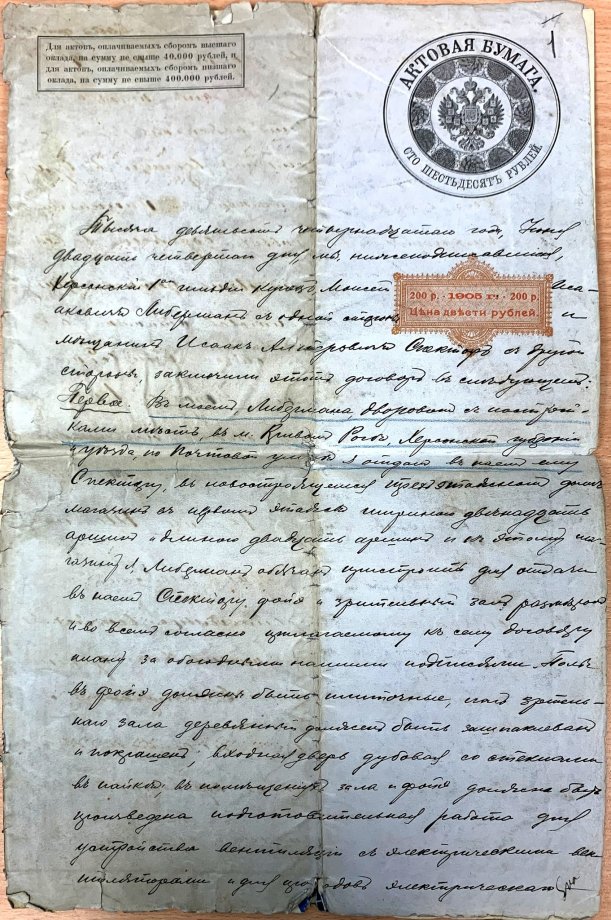 Для актовъ, оплачиваемыхъ сборомъ высшаго
оклада, на сумму не свыше 40.000 рублей, и
для актовъ, оплачиваемыхъ сборомъ низшаго
оклада, на сумму не свыше 400.000 рублей.
АКТОВАЯ БУМАГА.
СТО ШЕСТЬДЕСЯТЪ РУБЛЕЙ
1
Тысяча девятьсотъ четырнадцатаго года, Июня
двадцать четвертаго дня мы, нижеподписавшіеся,
Херсонскій 1ой гильдіи купецъ Моисей Иса-
200 р. - 1905 г. - 200 р.
Цѣна двѣсти рублей.
аковичъ Либерманъ съ одной стороны и
мѣщанинъ Исаакъ Спекторъ съ другой
стороны заключили этотъ договоръ въ слѣдующемъ:
Первое. Въ моемъ, Либермана, дворовомъ съ построй-
ками мѣстѣ, въ м. Кривомъ Рогѣ, Херсонской губерніи
и уѣзда, по Почтовой улицѣ я отдалъ въ наемъ ему
Спектору, въ новостроющемся трехэтажномъ домѣ
магазинъ въ первомъ этажѣ шириною двѣнадцать
аршинъ и длиною двадцать аршинъ и къ этому ма-
газину я, Либерманъ обязанъ пристроить для отдачи
въ наемъ Спектору фойэ и зрительный залъ размѣромъ
и во всемъ согласно прилагаемому къ сему договору
плану за обоюдными нашими подписями. Полы
въ фойэ должны быть плиточные, полъ зритель-
наго зала деревянный долженъ быть зашпаклеванъ
и покрашенъ; входная дверь дубовая со стеклами
въ помѣщеніи зала и фойэ должна быть
произведена подготовительная работа для
устройства вентиляціи съ электрическими вен-
тиляторами и для проводовъ электрическаго